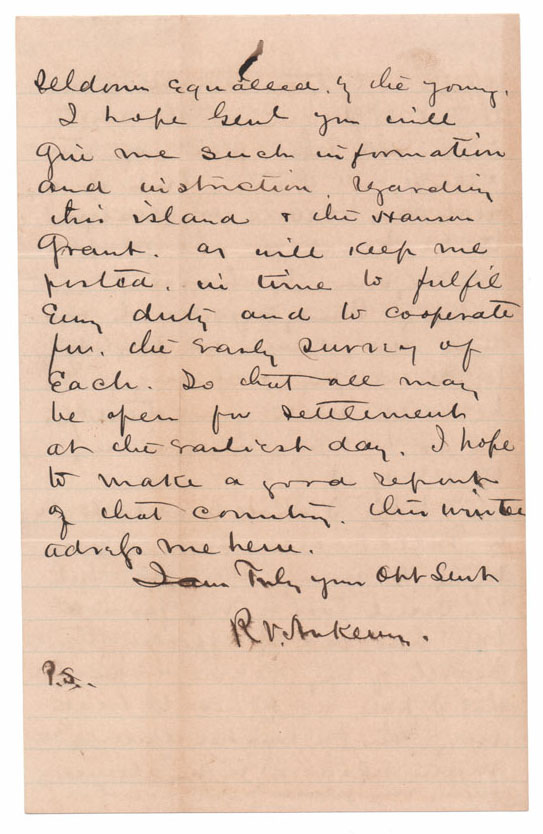 seldom Equalled. by the young.
I hope Genl you will
give me such information
and instruction. Regarding
this island & the Hanson
Grant. as will keep me
posted. in time to fulfil
Every duty and to cooperate
for. the Early survey of
Each. So that all may
be open for settlement
at the Earliest day. I hope
to make a good report
of that country. this winter
adress me here.
I am Truly your Obt Servt
R.V. Ankeny.
P.S.